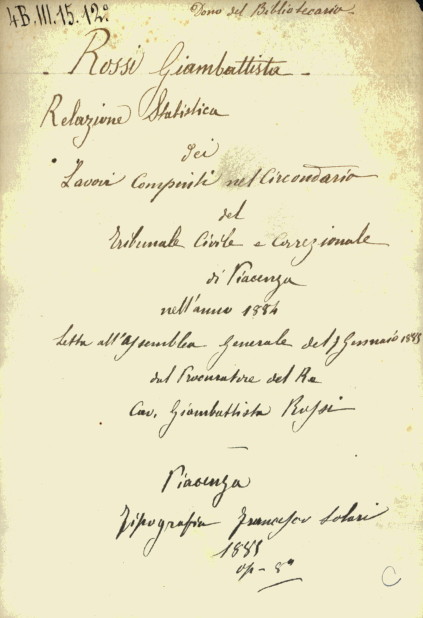 4B.III.15.12°
Dono del Bibliotecario
Rossi Giambattista
Relazione Statistica
dei
Lavori Compiuti nel Circondario
del
Tribunale Civile e Correzionale
di Piacenza
nell'anno 1884
Letta all'Assemblea Generale del Gennaio 1885
dal Procuratore del Re
Cav. Giambattista Rossi
Piacenza
Tipografia Francesco Solari
1885
op-8°
C